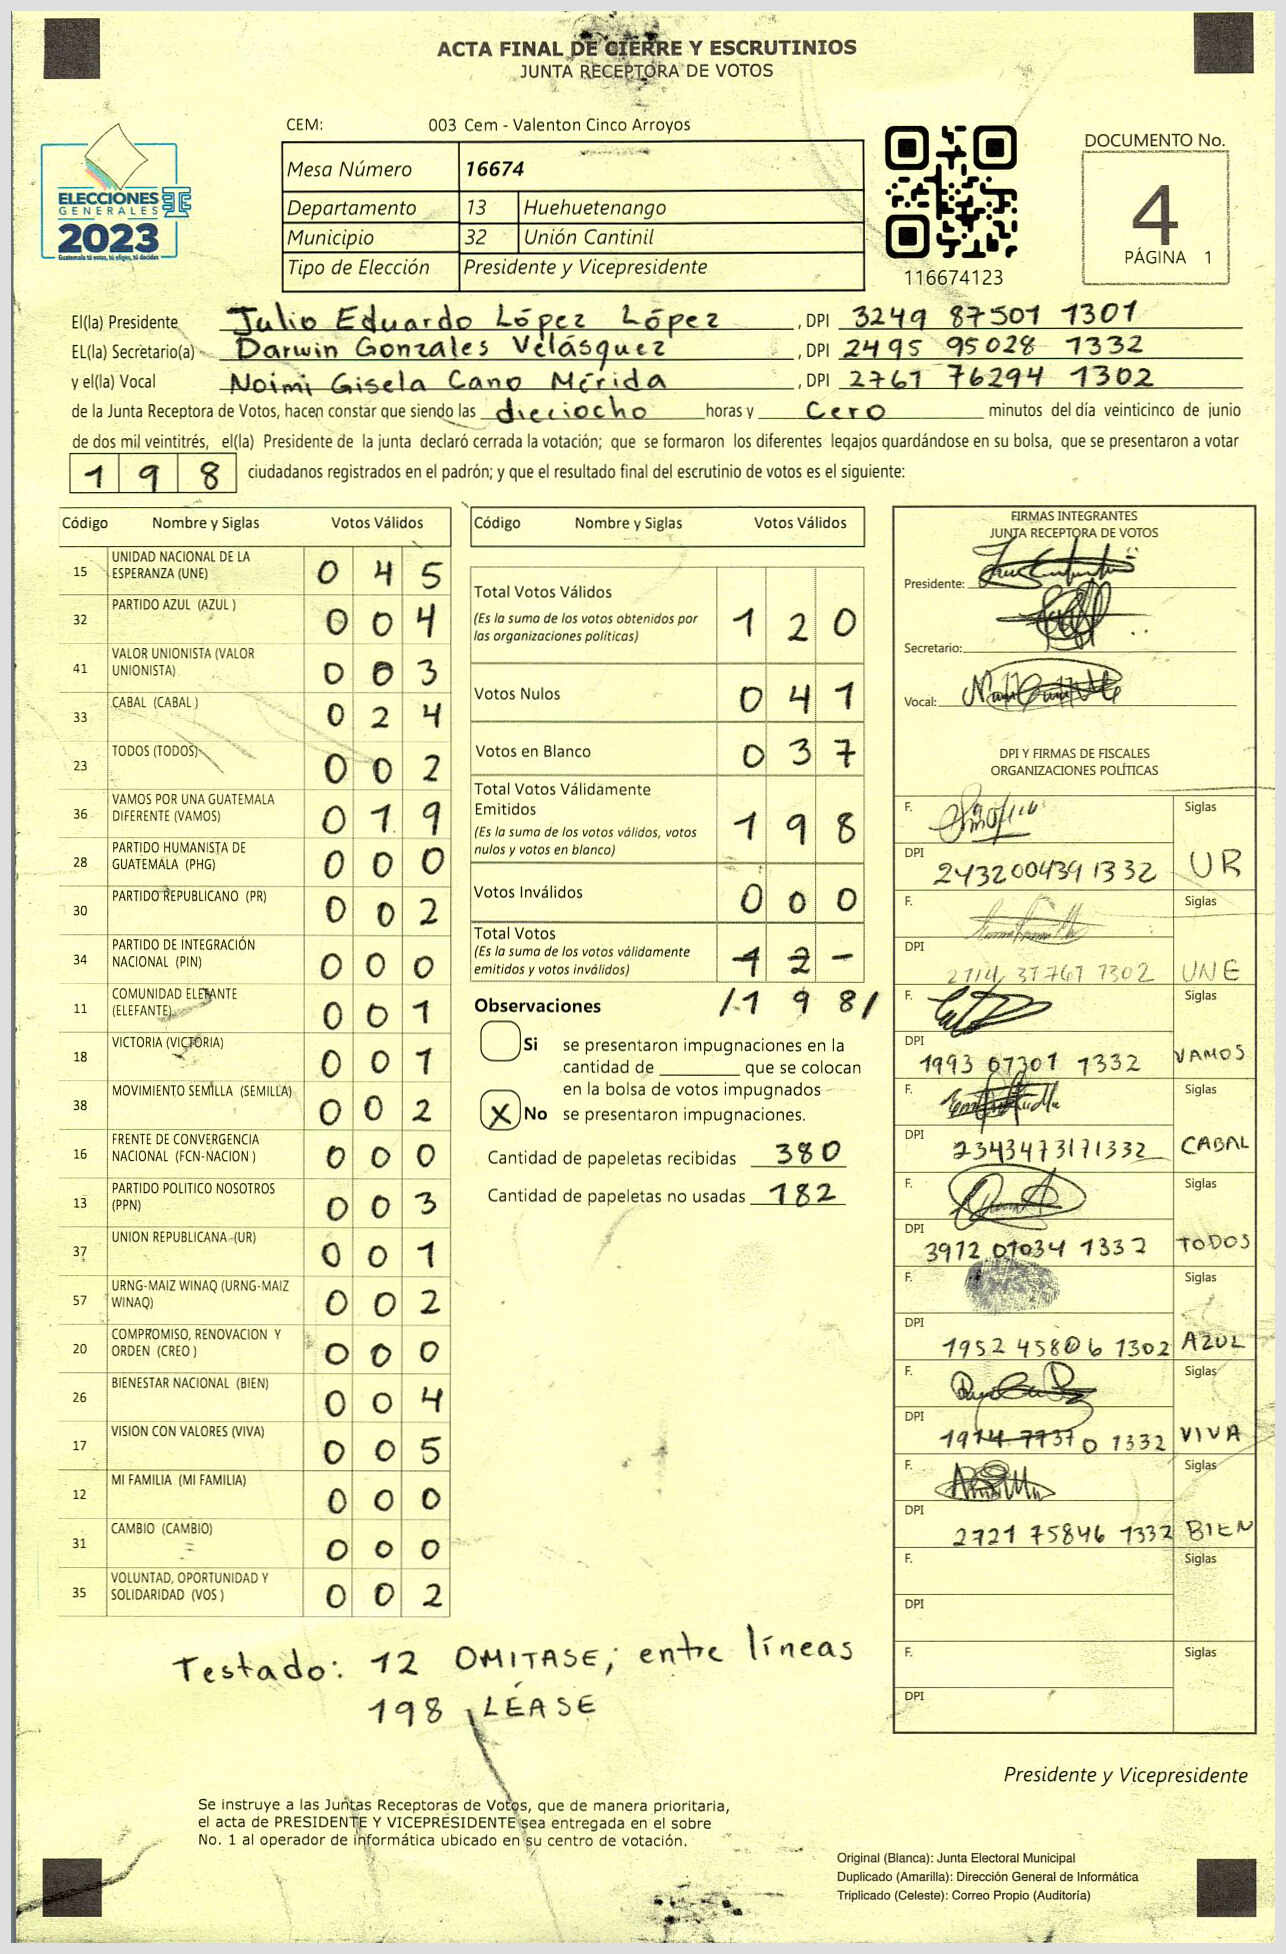 ACTA FINAL DE CIERRE Y ESCRUTINIOS
JUNTA RECEPTORA DE VOTOS
CEM: 003 Cem - Valenton Cinco Arroyos
Mesa Número 16674
Departamento 13 Huehuetenango
Municipio 32 Unión Cantinil
Tipo de Elección Presidente y Vicepresidente
ELECCIONES
GENERALES
2023
Guatemala tú votas, tú eliges, tú decides
116674123
DOCUMENTO No.
4
PÁGINA 1
El(la) Presidente Julio Eduardo López López , DPI 3249 87501 1301
EL(la) Secretario(a) Darwin Gonzales Velásquez , DPI 2495 95028 1332
y el(la) Vocal Noimi Gisela Cano Mérida , DPI 2761 76294 1302
de la Junta Receptora de Votos, hacen constar que siendo las dieciocho horas y cero minutos del día veinticinco de junio
de dos mil veintitrés, el(la) Presidente de la junta declaró cerrada la votación; que se formaron los diferentes legajos guardándose en su bolsa, que se presentaron a votar
1 9 8 ciudadanos registrados en el padrón; y que el resultado final del escrutinio de votos es el siguiente:
Código Nombre y Siglas Votos Válidos
15 UNIDAD NACIONAL DE LA ESPERANZA (UNE) 0 4 5
32 PARTIDO AZUL (AZUL ) 0 0 4
41 VALOR UNIONISTA (VALOR UNIONISTA) 0 0 3
33 CABAL (CABAL ) 0 2 4
23 TODOS (TODOS) 0 0 2
36 VAMOS POR UNA GUATEMALA DIFERENTE (VAMOS) 0 1 9
28 PARTIDO HUMANISTA DE GUATEMALA (PHG) 0 0 0
30 PARTIDO REPUBLICANO (PR) 0 0 2
34 PARTIDO DE INTEGRACIÓN NACIONAL (PIN) 0 0 0
11 COMUNIDAD ELEFANTE (ELEFANTE) 0 0 1
18 VICTORIA (VICTORIA) 0 0 1
38 MOVIMIENTO SEMILLA (SEMILLA) 0 0 2
16 FRENTE DE CONVERGENCIA NACIONAL (FCN-NACION ) 0 0 0
13 PARTIDO POLITICO NOSOTROS (PPN) 0 0 3
37 UNION REPUBLICANA (UR) 0 0 1
57 URNG-MAIZ WINAQ (URNG-MAIZ WINAQ) 0 0 2
20 COMPROMISO, RENOVACION Y ORDEN (CREO ) 0 0 0
26 BIENESTAR NACIONAL (BIEN) 0 0 4
17 VISION CON VALORES (VIVA) 0 0 5
12 MI FAMILIA (MI FAMILIA) 0 0 0
31 CAMBIO (CAMBIO) 0 0 0
35 VOLUNTAD, OPORTUNIDAD Y SOLIDARIDAD (VOS ) 0 0 2
Código Nombre y Siglas Votos Válidos
Total Votos Válidos 1 2 0
(Es la suma de los votos obtenidos por
las organizaciones políticas)
Votos Nulos 0 4 1
Votos en Blanco 0 3 7
Total Votos Válidamente
Emitidos 1 9 8
(Es la suma de los votos válidos, votos
nulos y votos en blanco)
Votos Inválidos 0 0 0
Total Votos 1 2 -
(Es la suma de los votos válidamente
emitidos y votos inválidos)
/1 9 8/
Observaciones
Si se presentaron impugnaciones en la
cantidad de ________ que se colocan
en la bolsa de votos impugnados
X No se presentaron impugnaciones.
Cantidad de papeletas recibidas 380
Cantidad de papeletas no usadas 182
FIRMAS INTEGRANTES
JUNTA RECEPTORA DE VOTOS
Presidente:
Secretario:
Vocal:
DPI Y FIRMAS DE FISCALES
ORGANIZACIONES POLÍTICAS
F. Siglas
DPI 2432004391332 UR
F. Siglas
DPI 2714 37761 1302 UNE
F. Siglas
DPI 1993 07301 1332 VAMOS
F. Siglas
DPI 2343473171332 CABAL
F. Siglas
DPI 3912 01034 1332 TODOS
F. Siglas
DPI 1952 45806 1302 AZUL
F. Siglas
DPI 1914 7737 0 1332 VIVA
F. Siglas
DPI 2721 75846 1332 BIEN
F. Siglas
DPI
F. Siglas
DPI
Testado: 12 OMITASE; entre líneas
198 LÉASE
Presidente y Vicepresidente
Se instruye a las Juntas Receptoras de Votos, que de manera prioritaria,
el acta de PRESIDENTE Y VICEPRESIDENTE sea entregada en el sobre
No. 1 al operador de informática ubicado en su centro de votación.
Original (Blanca): Junta Electoral Municipal
Duplicado (Amarilla): Dirección General de Informática
Triplicado (Celeste): Correo Propio (Auditoría)